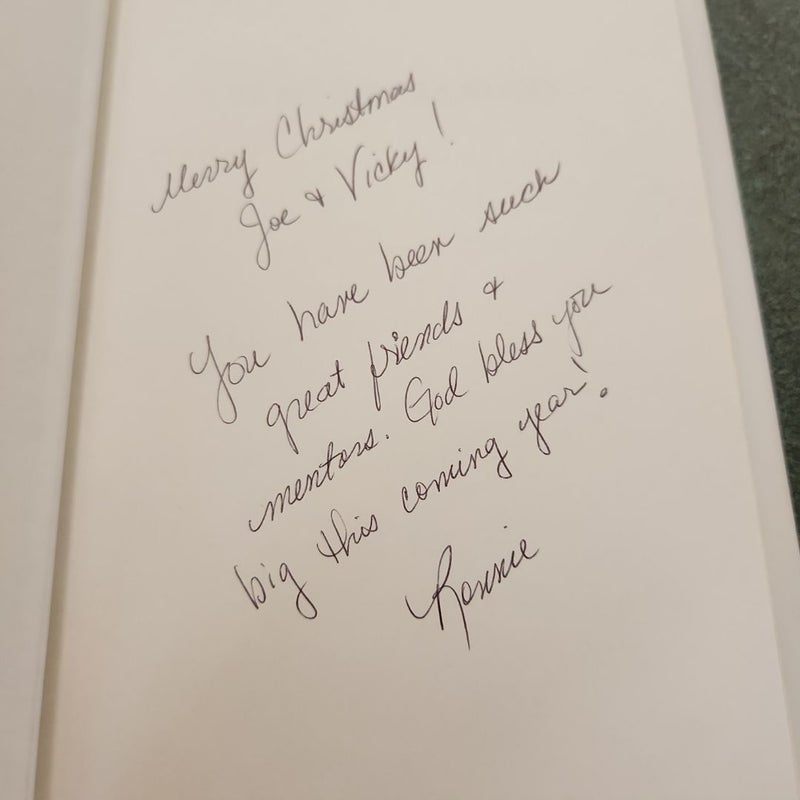 Merry Christmas
Joe & Vicky!
You have been such
great friends &
mentors. God bless you
big this coming year!
Ronnie